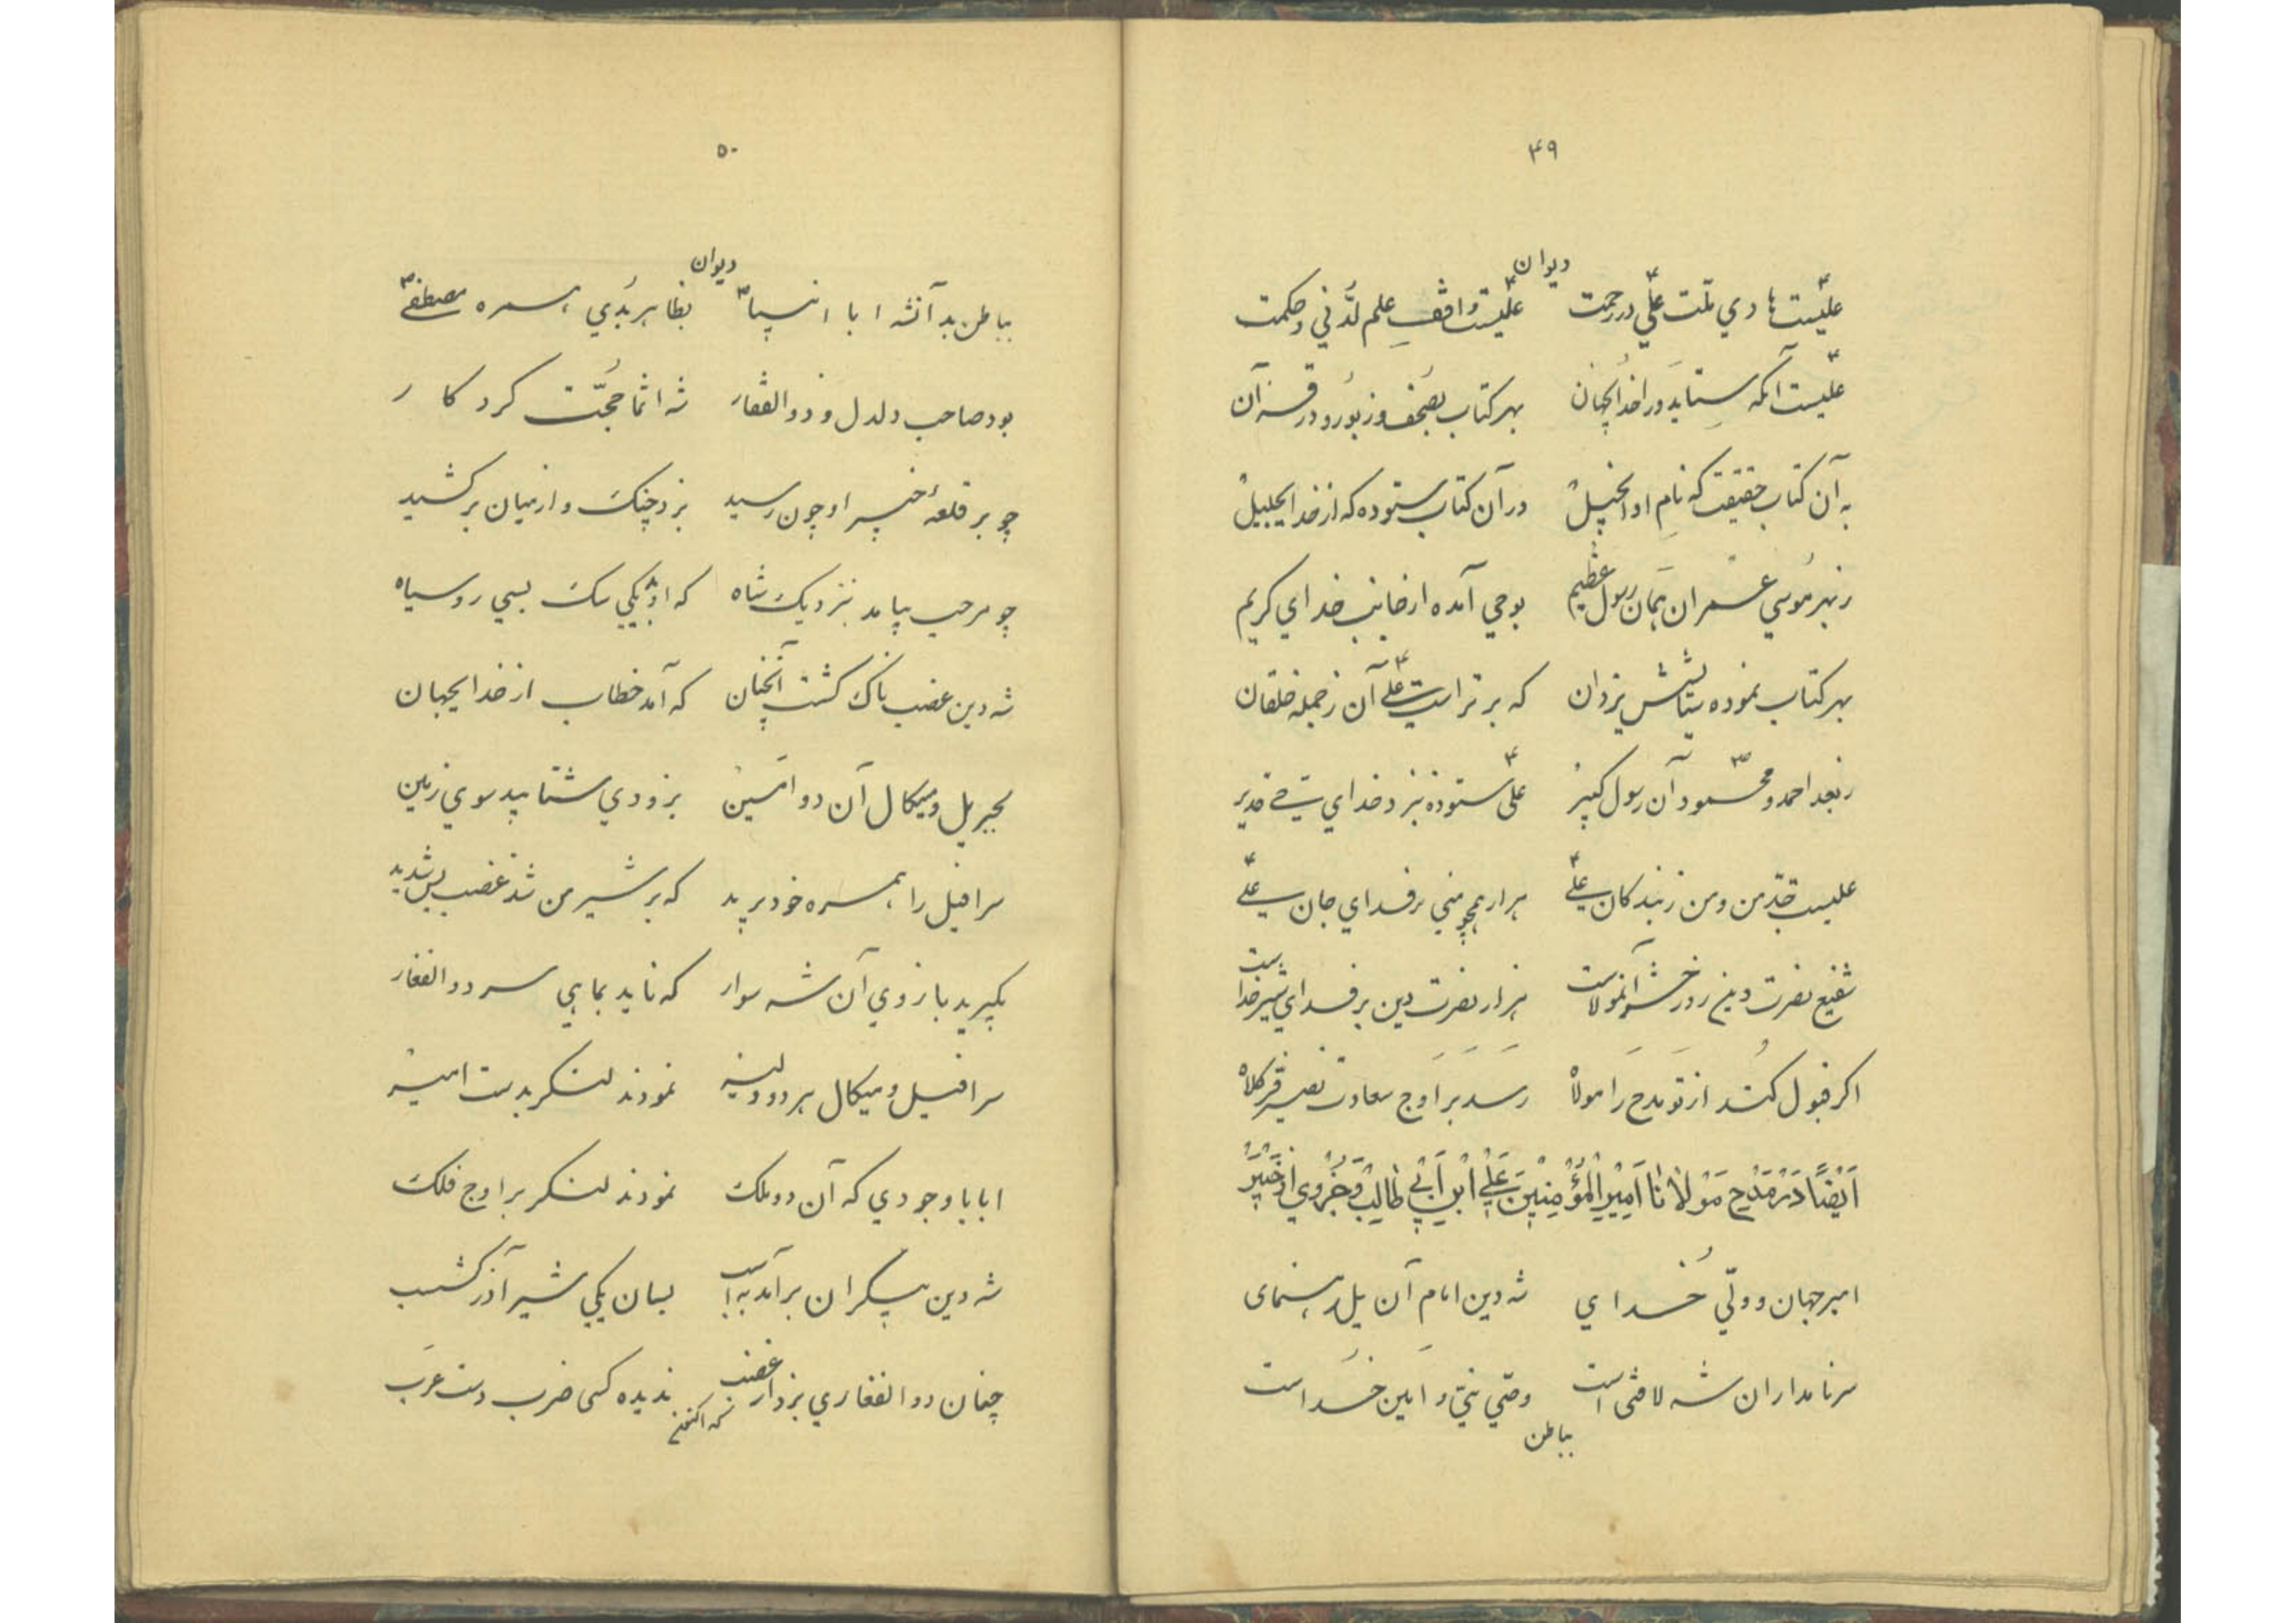 ۴۹
دیوان
علیست هادي ملت علي در رحمت علیست واقف علم لدني و حکمت
علیست آنکه ستاید ورا خدایجهان بهر کتاب بصحف و زبور و در قرآن
به آن کتاب حقیقت که نام او انجیل در آن کتاب ستوده که از خدایجلیل
ز بهر موسي عمران همان رسول عظیم بوحي آمده از جانب خداي کریم
بهر کتاب نموده ستایشش یزدان که برتر است علي آن ز جمله خلقان
ز بعد احمد و محمود آن رسول کبیر علی ستوده نزد خداي حي قدیر
علیست جد من و من ز بندکان علي هزار همچو مني بر فداي جان علي
شفیع نصرت دین روز حشر آنمولاست هزار نصرت دین بر فداي شیر خداست
اکر قبول کند از تو مدح را مولا رسد بر اوج سعادت نصیر فرکلاه
اَیْضاً دَرْ مَدْحِ مَوْلانا اَمیْرِالْمُؤْمِنیْنَ عَلي ابْنِ اَبي طالِبْ وَ جُزْوي از خَیْبَرْ
امیر جهان و ولي خداي شه دین امام آن یل رهنمای
سر نامداران شه لافتی است وصي نبي و امین خداست
بباطن
۵۰
دیوان
بباطن بد آنشه ابا انبیا بظاهر بدي همره مصطفي
بود صاحب دلدل و ذوالفقار شه انما حجت کردکار
چو بر قلعهٔ خیبر او چون رسید بزد چنک و از میان برکشید
چو مرحب بیامد بنزدیک شاه که او یکي سک بسي روسیاه
شه دین غضب ناک کشت آنچنان که آمد خطاب از خدایجهان
بجبریل و میکال آن دو امین بزودي شتابید سوي زمین
سرافیل را همره خود برید که بر شیر من شد غضب بس شدید
بکیرید بازوي آن شه سوار که ناید بماهي سر ذوالفقار
سرافیل و میکال هر دو نمودند لنکر بدست امین
ابا با وجودي که آن دو ملک نمودند لنکر بر اوج فلک
شه دین بیکران برآمد به اسب بسان یکي شیر آذر کشسب
چنان ذوالفقاري بزد از غضب ندیده کسی ضرب دست عرب
که